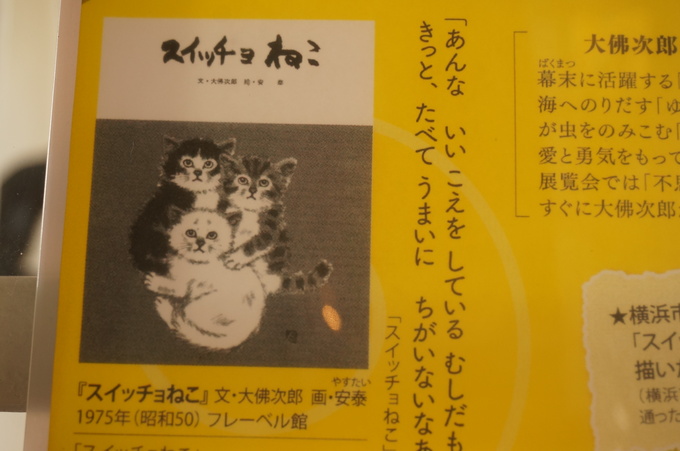 スイッチョねこ
文・大佛次郎　絵・安　泰
『スイッチョねこ』文・大佛次郎　画・安泰
やすたい
1975年（昭和50）フレーベル館
「あんな　いい こえを している むしだも
きっと、たべて うまいに　ちがいないなあ
「スイッチョねこ」
大佛次郎
ばくまつ
幕末に活躍する「
海へのりだす「ゆ
が虫をのみこむ「
愛と勇気をもって
展覧会では「不
すぐに大佛次郎
★横浜市
「スイ
描い
（横浜
通った